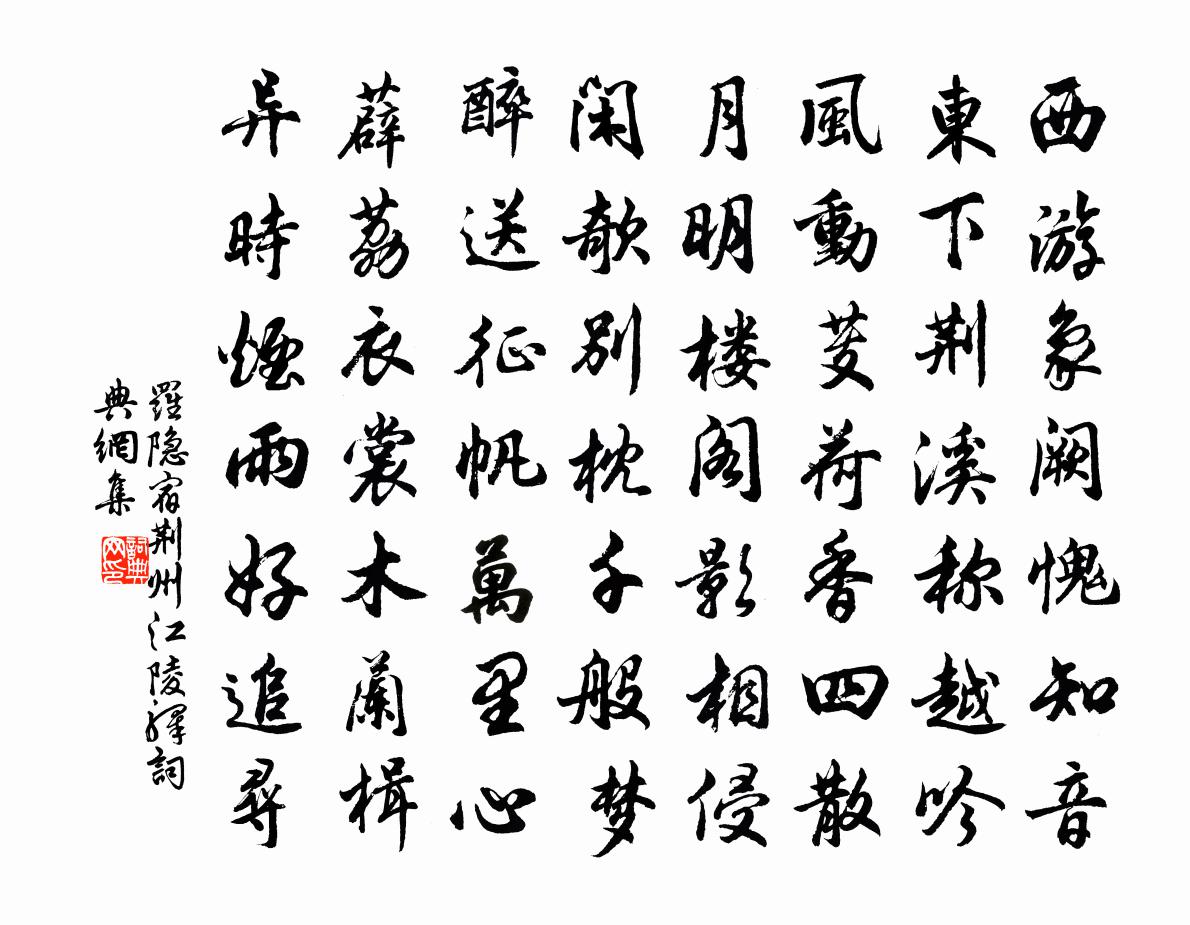 西游象阙愧知音
東下荆溪称越吟
風動芰荷香四散
月明楼阁影相侵
闲欹别枕千般梦
醉送征帆萬里心
薜荔衣裳木蘭楫
异時煙雨好追尋
羅隐宿荆州江陵驛詞
典網集
詞典
网印